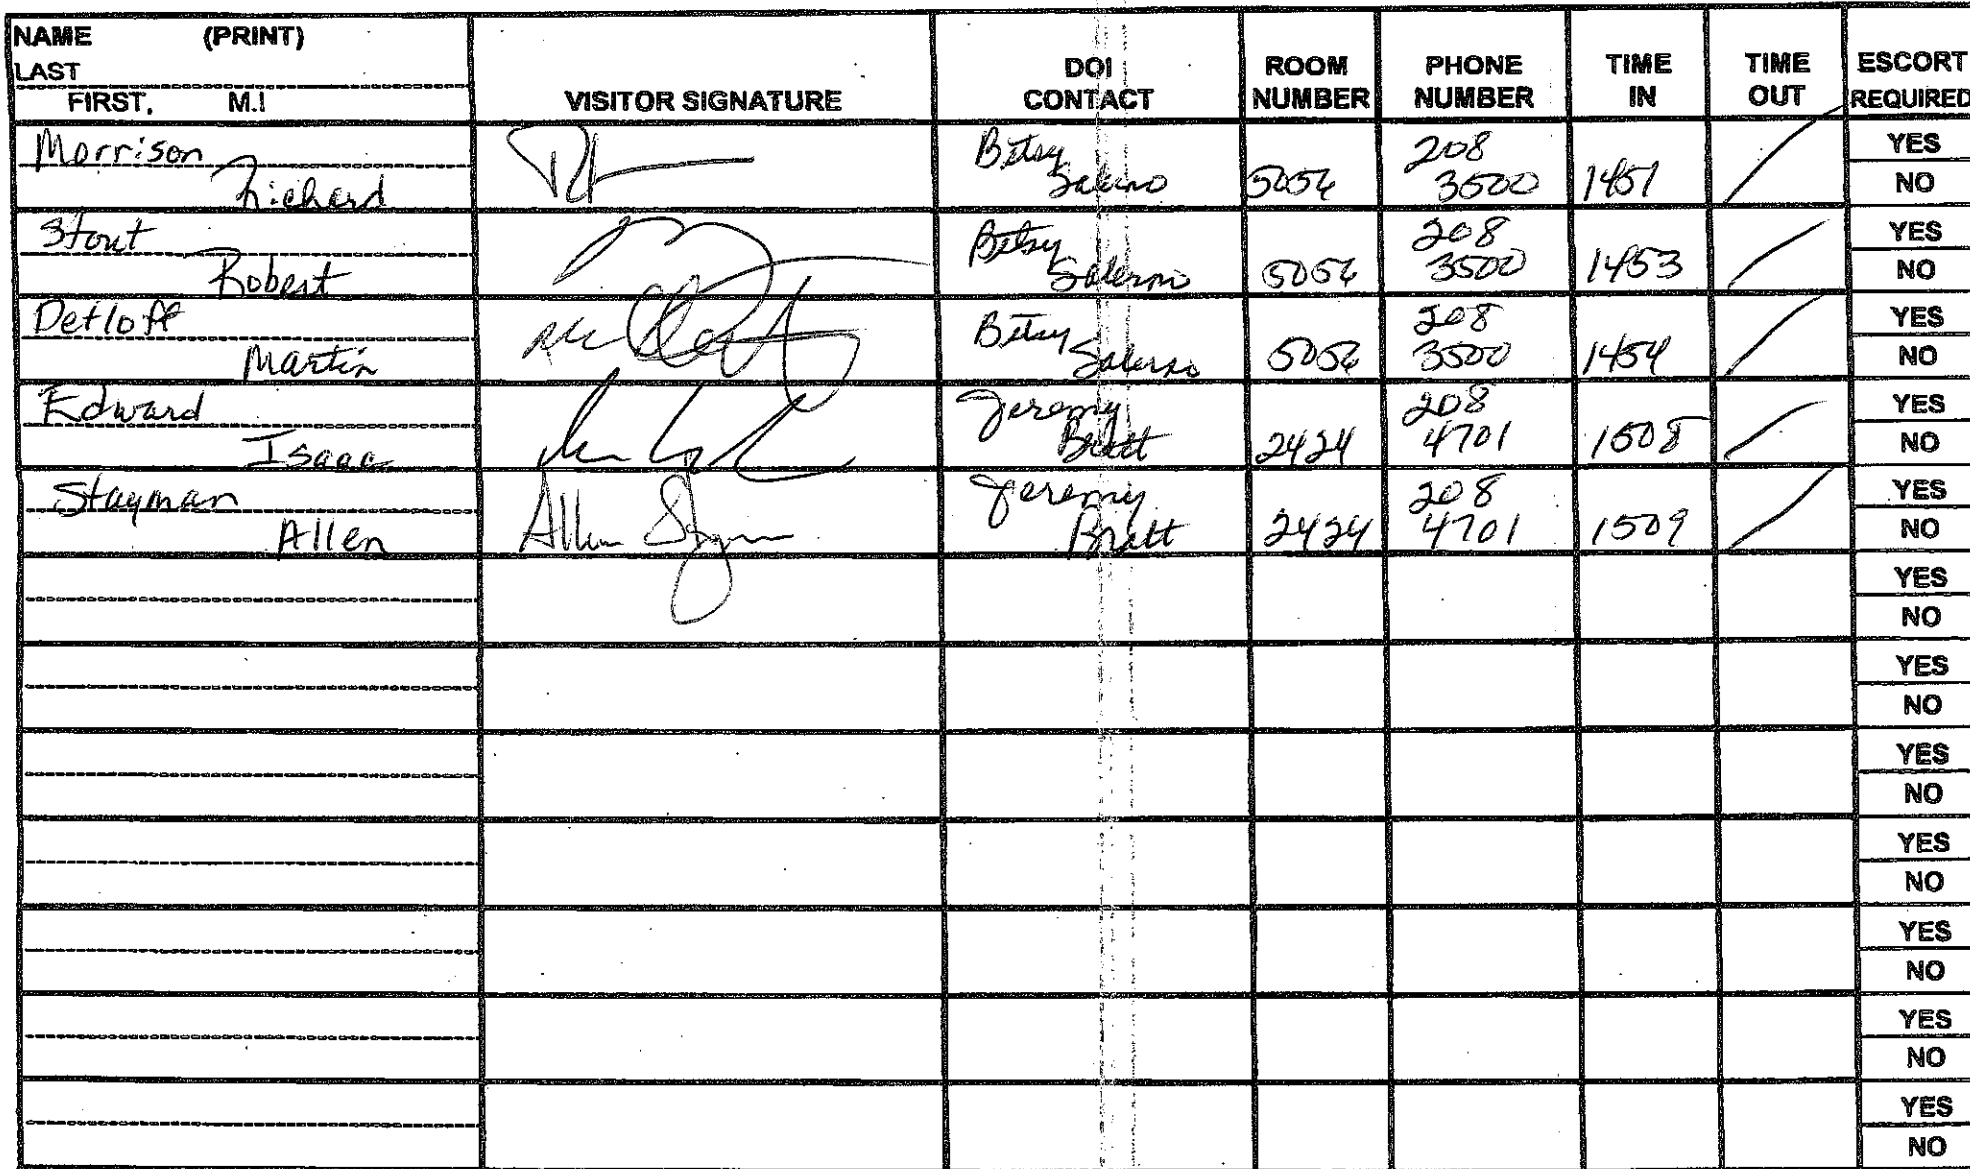 NAME (PRINT)
LAST
FIRST, M.I
VISITOR SIGNATURE
DOI
CONTACT
ROOM
NUMBER
PHONE
NUMBER
TIME
IN
TIME
OUT
ESCORT
REQUIRED
Morrison
Richard
Betsy
Salerno
5056
208
3500
1451
YES
NO
Stout
Robert
Betsy
Salerno
5056
208
3500
1453
YES
NO
Detloff
Martin
Betsy
Salerno
5056
208
3500
1454
YES
NO
Edward
Isaac
Jeremy
Bratt
2424
208
4701
1508
YES
NO
Stayman
Allen
Allen
Jeremy
Bratt
2424
208
4701
1509
YES
NO
YES
NO
YES
NO
YES
NO
YES
NO
YES
NO
YES
NO
YES
NO